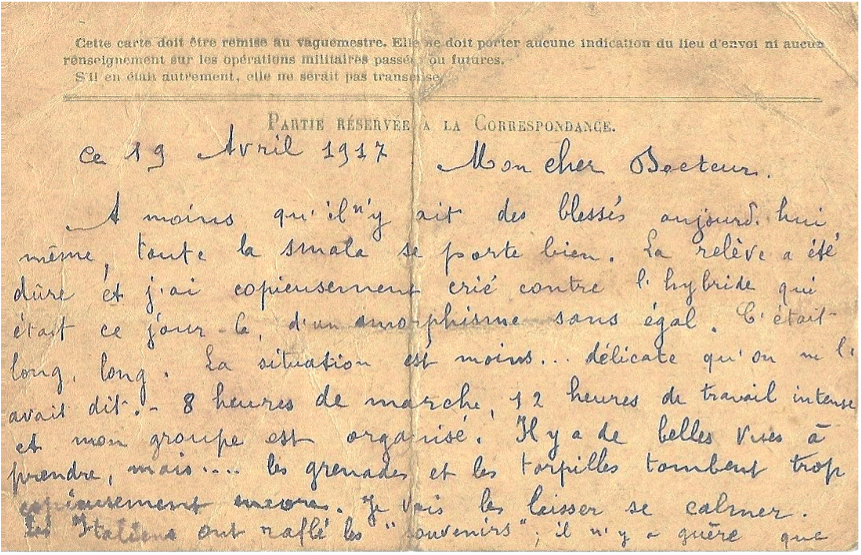 Cette carte doit être remise au vaguemestre. Elle ne doit porter aucune indication du lieu d'envoi ni aucun
renseignement sur les opérations militaires passées ou futures.
S'il en était autrement, elle ne serait pas transmise.
PARTIE RÉSERVÉE A LA CORRESPONDANCE.
Ce 19 Avril 1917 Mon cher Docteur.
A moins qu'il n'y ait des blessés aujourd'hui
même, toute la smala se porte bien. La relève a été
dûre et j'ai copieusement crié contre l'hybride qui
était ce jour-là, d'un amorphisme sans égal. C'était
long, long. La situation est moins... délicate qu'on ne l'
avait dit. - 8 heures de marche, 12 heures de travail intense
et mon groupe est organisé. Il y a de belles vues à
prendre, mais.... les grenades et les torpilles tombent trop
copieusement encore. Je vais les laisser se calmer.
Les Italiens ont raflé les "souvenirs"; il n'y a guère que